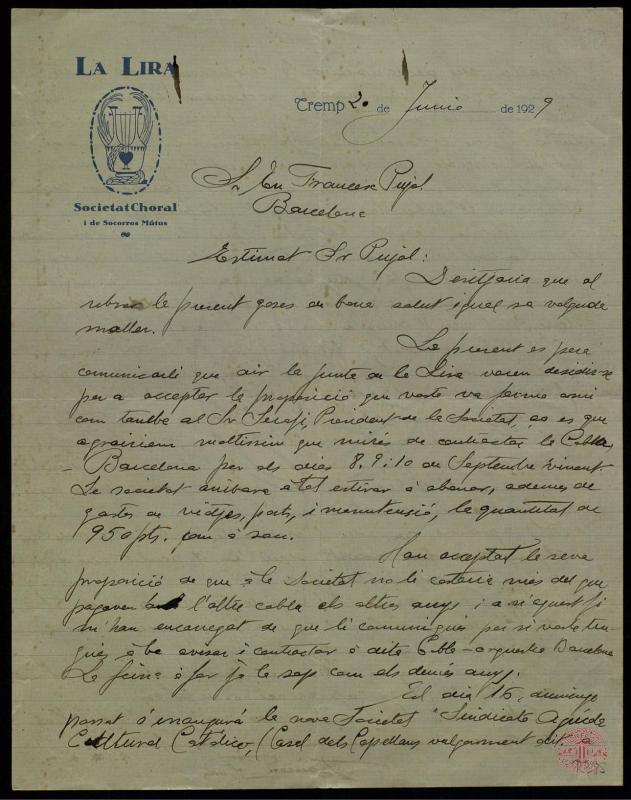 LA LIRA
Societat Choral
i de Socorros Mútus
Tremp 20 de Junio de 1929
Sr En Francesc Pujol.
Barcelona
Estimat Sr Pujol:
Desitjaria que al
rebrer la present goses de bona salut igual sa volguda
muller.
La present es pera
comunicarli que air la junta de la Lira varem desidirse
per a acceptar la proposició que vosté va ferme aixi
com tambe al Sr Serafi, President de la Societat, ço es que
agrairiem moltissim que mirés de contractar la Cobla
- Barcelona per els dies 8. 9 i 10 de Septembre vinent.
La societat aribara a tot estirar á abonar, ademes de
gastos de viatjes, ports, i manutensió, la quantitat de
950 pts. com á sou.
Han acceptat la seva
proposició de que á la Societat no li costaria mes del que
pagavem a l'altre cobla els altres anys i a n'aquest fi
m'han encarregat de que li comuniqués per si vosté tin-
gués á be avisar i contractar á dita Cobla-orquestra Barcelona
La feina á fer ja la sap com els demés anys.
El dia 16. domingo
passat s'inaugurá la nova Societat "Sindicato Agricola
Cultural Católico", (Casal dels Capellans vulgarment dit.